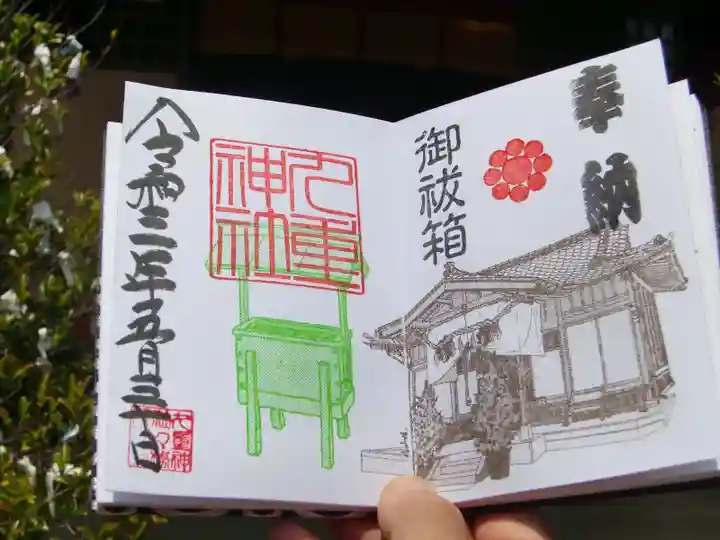 奉納
御祓箱
九重神社
令和三年五月三十日